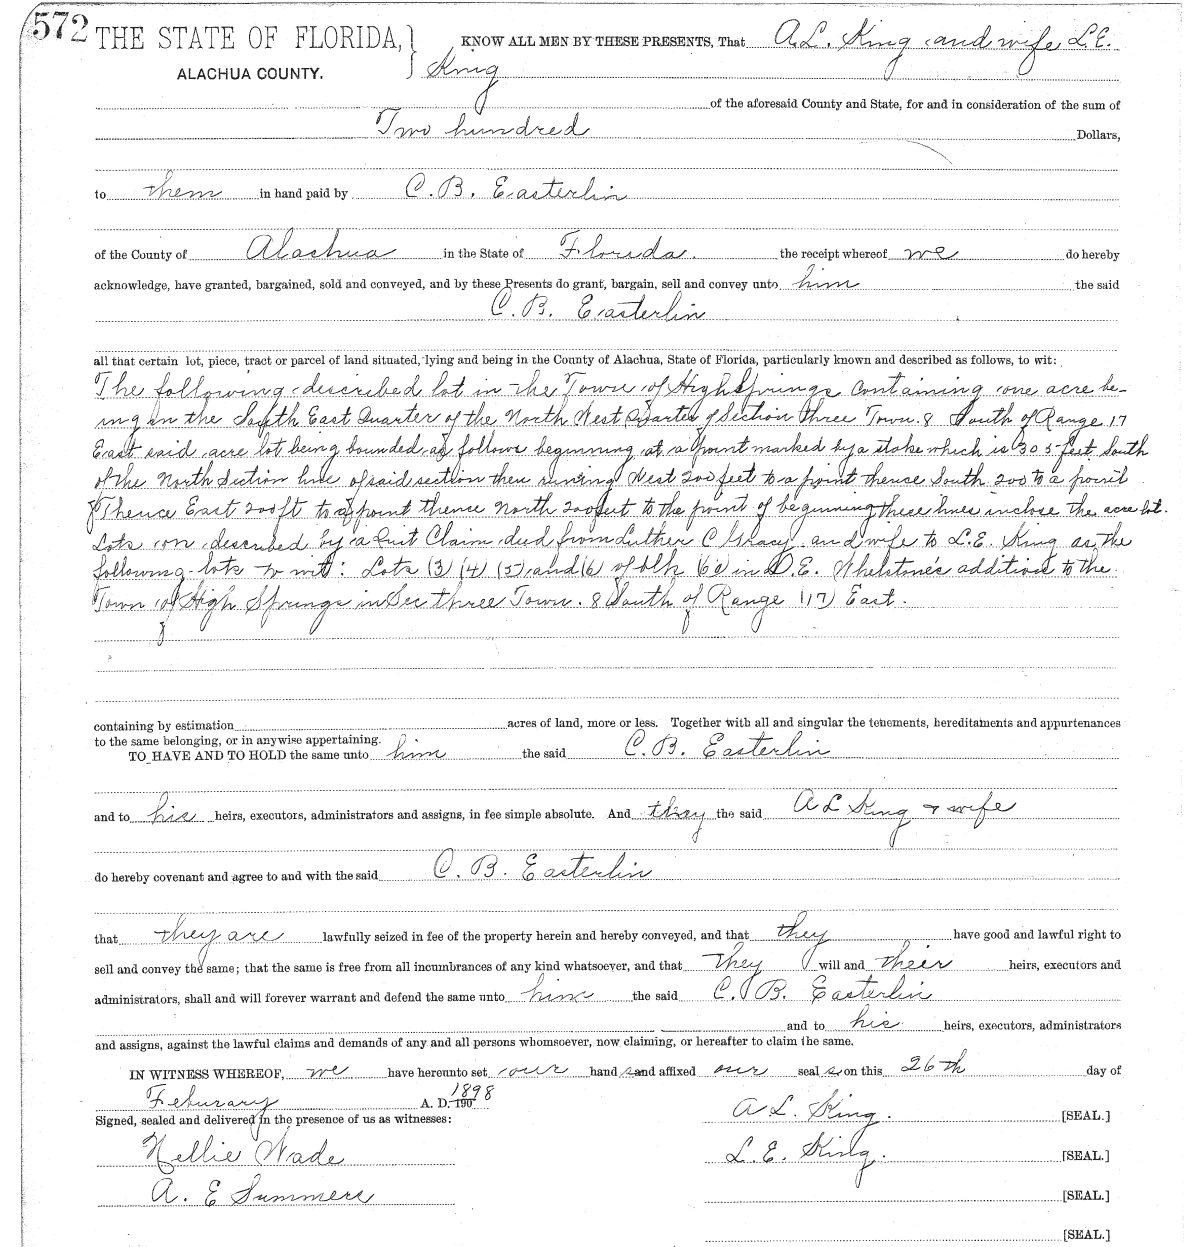 572 THE STATE OF FLORIDA, } KNOW ALL MEN BY THESE PRESENTS, That A.L. King and wife L.E.
ALACHUA COUNTY. King
of the aforesaid County and State, for and in consideration of the sum of
Two hundred Dollars,
to them in hand paid by C. B. Easterlin
of the County of Alachua in the State of Florida. the receipt whereof we do hereby
acknowledge, have granted, bargained, sold and conveyed, and by these Presents do grant, bargain, sell and convey unto him the said
C. B. Easterlin
all that certain lot, piece, tract or parcel of land situated, lying and being in the County of Alachua, State of Florida, particularly known and described as follows, to wit:
The following described lot in the Town of High Springs Containing one acre be-
ing in the South East Quarter of the North West Quarter of Section three Town. 8 South of Range 17
East said acre lot being bounded as follows beginning at a point marked by a stake which is 305 feet South
of the North Section line of said section then runing West 200 feet to a point thence South 200 to a point
Thence East 200 ft to a point thence North 200 feet to the point of beginning these lines inclose the acre lot.
Lots on described by a Quit Claim deed from Luther C Gracy and wife to L.E. King as the
following lots to wit: Lots (3) (4) (5) and (6) of blk (6) in D.E. Whetstone's addition to the
Town of High Springs in Sec three Town. 8 South of Range (17) East.
containing by estimation acres of land, more or less. Together with all and singular the tenements, hereditaments and appurtenances
to the same belonging, or in anywise appertaining.
TO HAVE AND TO HOLD the same unto him the said C. B. Easterlin
and to his heirs, executors, administrators and assigns, in fee simple absolute. And they the said A L King & wife
do hereby covenant and agree to and with the said C. B. Easterlin
that they are lawfully seized in fee of the property herein and hereby conveyed, and that they have good and lawful right to
sell and convey the same; that the same is free from all incumbrances of any kind whatsoever, and that they will and their heirs, executors and
administrators, shall and will forever warrant and defend the same unto him the said C. B. Easterlin
and to his heirs, executors, administrators
and assigns, against the lawful claims and demands of any and all persons whomsoever, now claiming, or hereafter to claim the same.
IN WITNESS WHEREOF, we have hereunto set our hand s and affixed our seal s on this 26th day of
Feburary A. D. 190 1898
Signed, sealed and delivered in the presence of us as witnesses: A L. King. [SEAL.]
Nellie Wade L. E. King. [SEAL.]
A. E Summers [SEAL.]
[SEAL.]